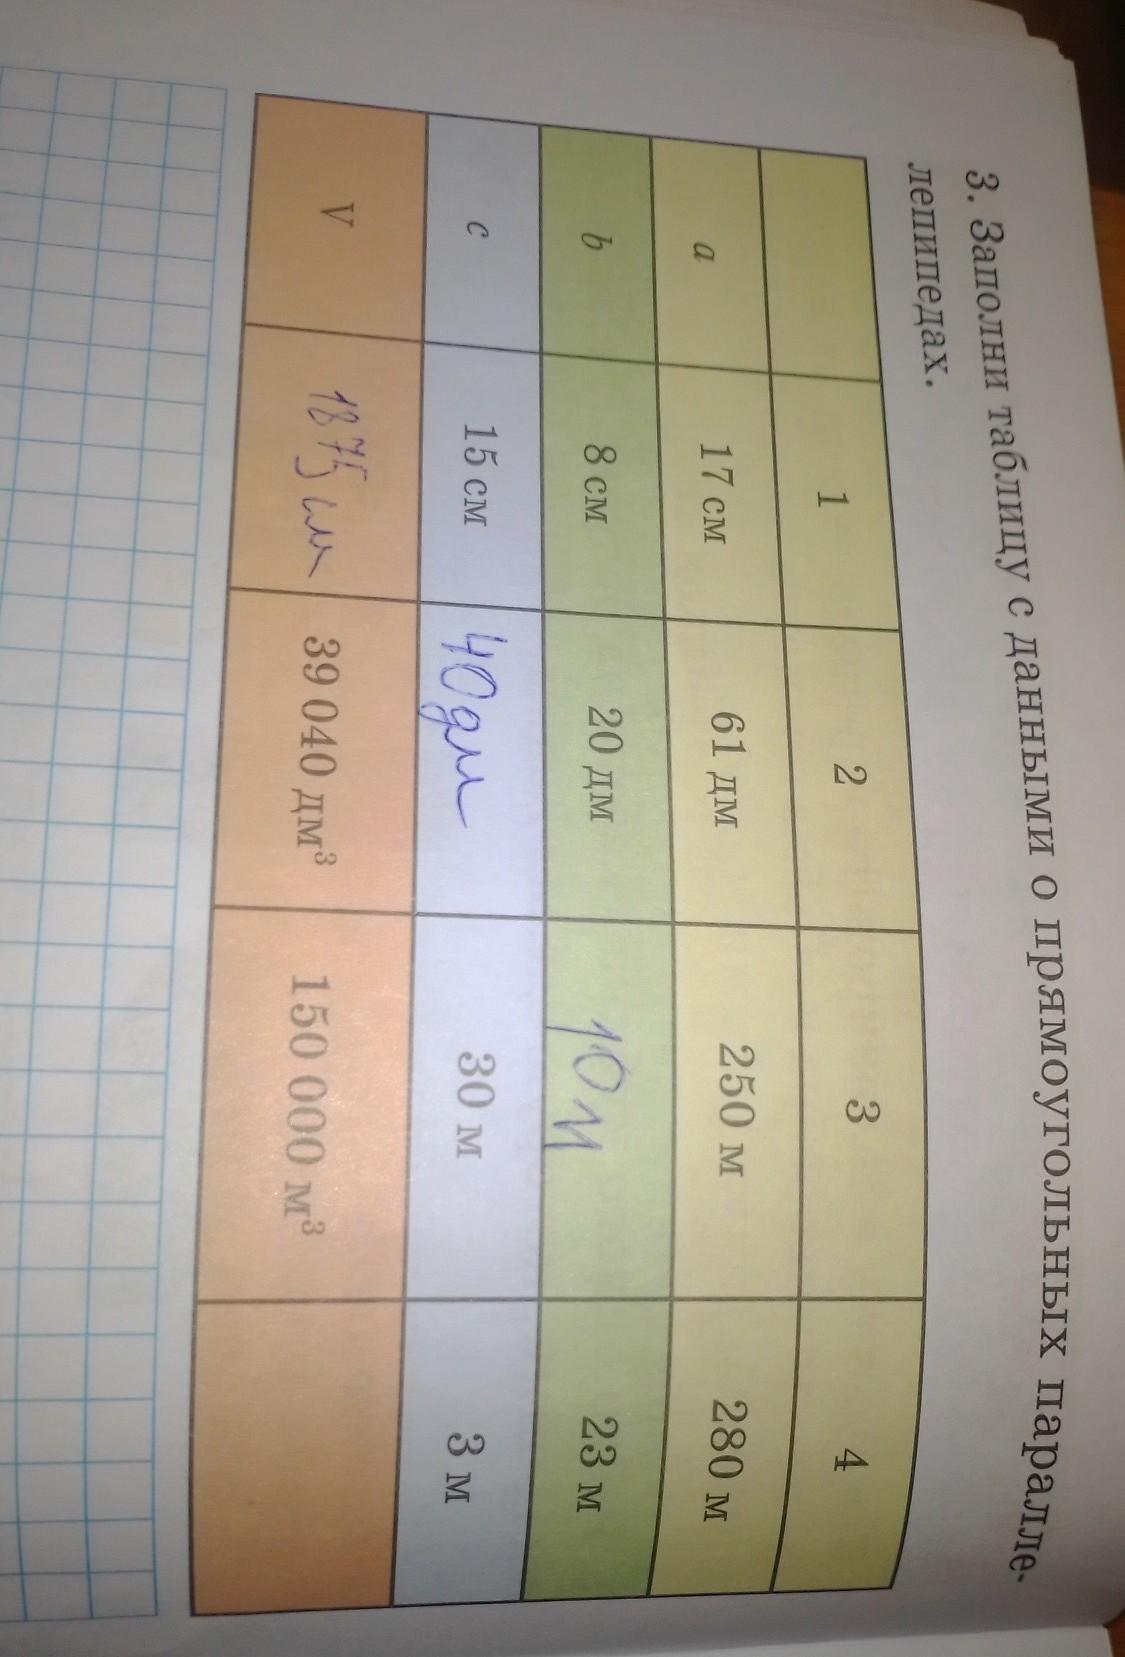 3. Заполни таблицу с данными о прямоугольных паралле-
лепипедах.
1 2 3 4
a 17 см 61 дм 250 м 280 м
b 8 см 20 дм 10 м 23 м
c 15 см 40 дм 30 м 3 м
V 1875 см 39 040 дм³ 150 000 м³